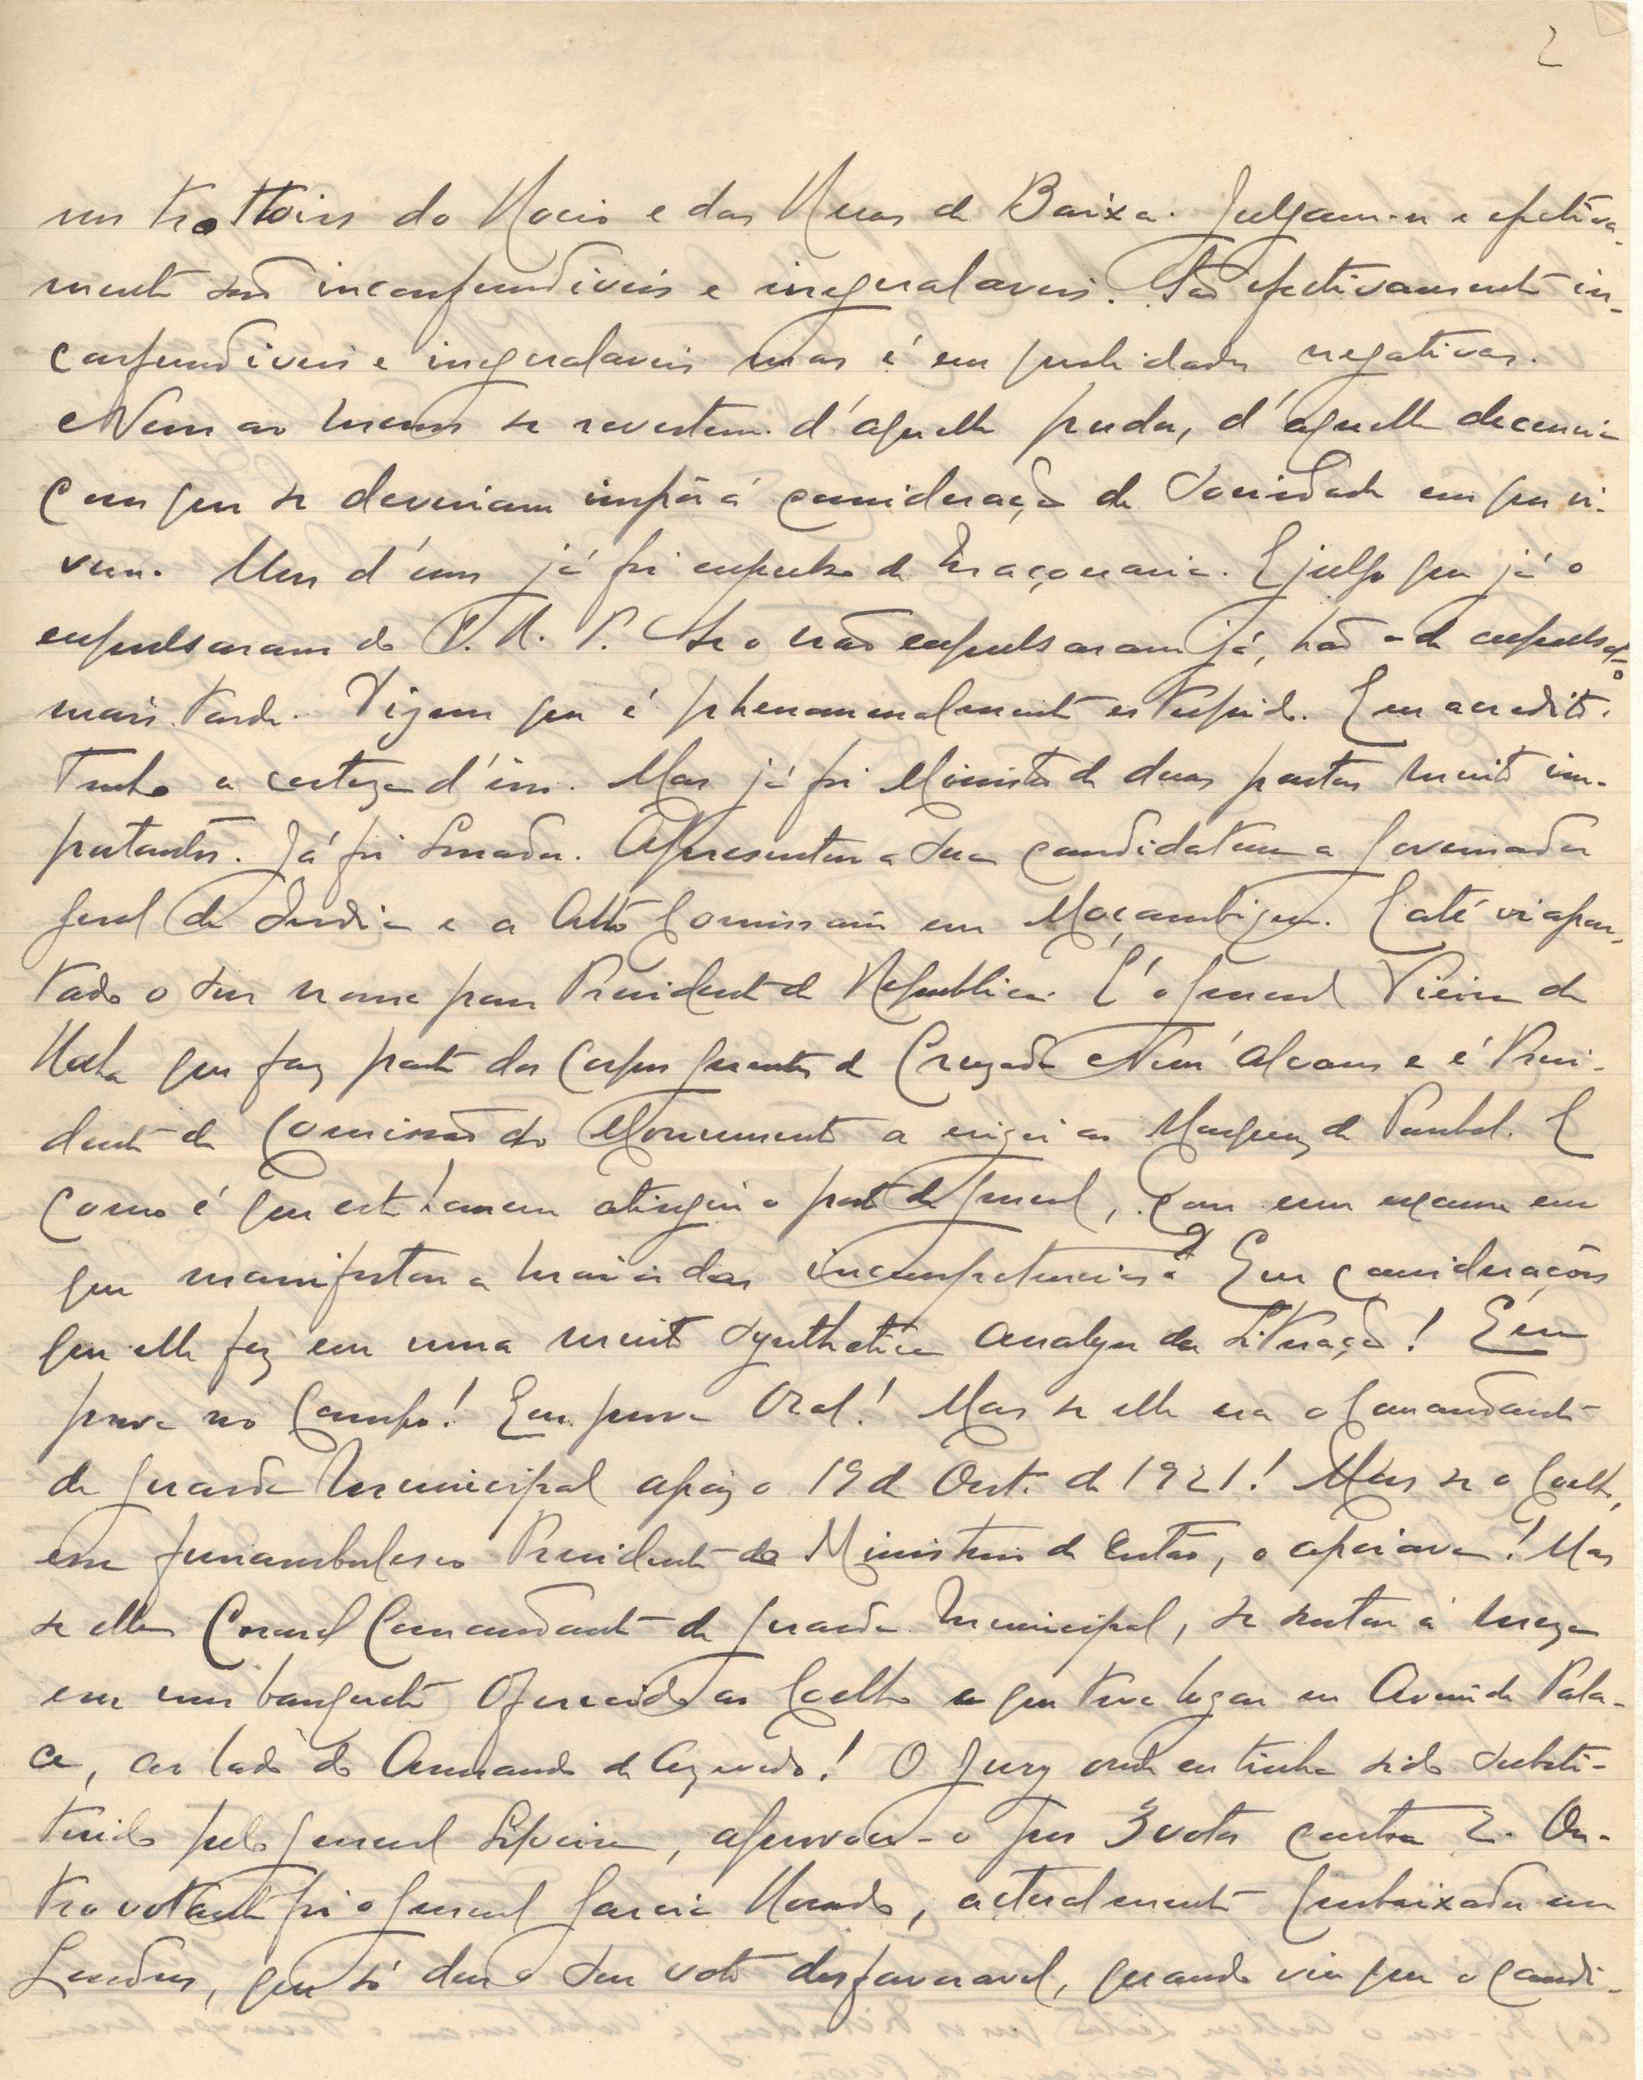 2
nos trottoirs do Rocio e das Ruas da Baixa. Julgam-se e efectiva-
mente são inconfundiveis e inegualaveis. São efectivamente in-
confundiveis e inegualaveis mas é em qualidades negativas.
Nem ao menos se revestem d'aquelle pudor, d'aquella decencia
com que se deveriam impôr á consideração da Sociedade em que vi-
vem. Um d'esses já foi expulso da Maçonaria. E julgo que já o
expulsaram do P. R. P. Se o não expulsaram já, hão-de expulsal-o
mais tarde. Dizem que é phenomenalmente estupido. E eu acredito.
Tenho a certeza d'isso. Mas já foi Ministro de duas pastas muito im-
portantes. Já foi Senador. Apresentou a sua candidatura a Governador
Geral da India e a Alto Comissario em Moçambique. E até vi apon-
tado o seu nome para Presidente da Republica. É o General Vieira da
Rocha que faz parte dos Corpos gerentes da Cruzada Nun'Alvares e é Presi-
dente da Comissão do Monumento a erigir ao Marquez de Pombal. E
como é que este homem atingiu o posto de General, com um exame em
que manifestou a maior das incompetencias? Em considerações
que elle fez em uma muito synthetica analyse da situação! Em
prova no Campo! Em prova Oral! Mas se elle era o Comandante
da Guarda Municipal após o 19 de Out. de 1921! Mas se o Coelho,
esse funambulesco Presidente do Ministerio de então, o apoiava! Mas
se elle Coronel Comandante da Guarda Municipal, se sentou á meza
em um banquete oferecido ao Coelho e que teve logar no Avenida Pala-
ce, ao lado do Armando de Azevedo! O Jury onde eu tinha sido substi-
tuido pelo General Siqueira, aprovou-o por 3 votos contra 2. Ou-
tro votante foi o General Garcia Rosado, actualmente Embaixador em
Londres, que só deu o seu voto desfavoravel, quando viu que o candi-